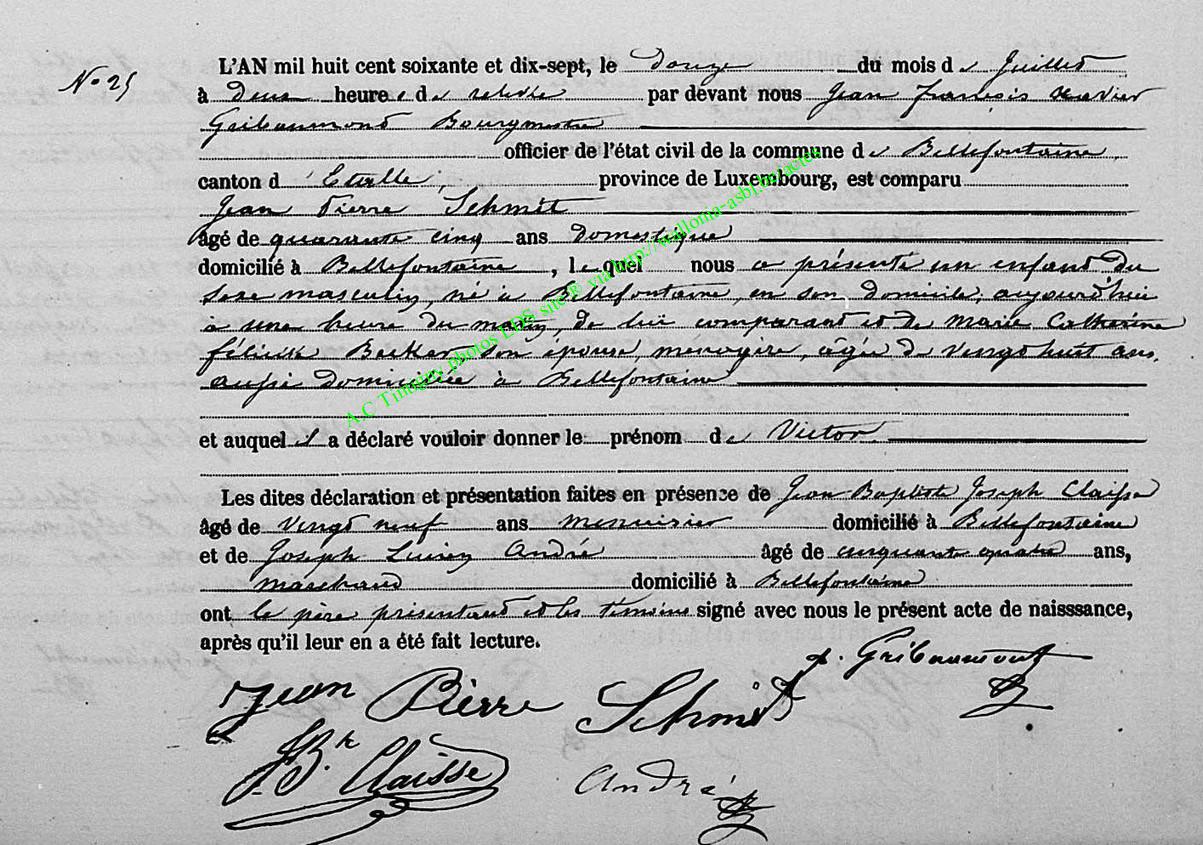 N° 25
L'AN mil huit cent soixante et dix-sept, le douze du mois de Juillet
à deux heures de relevée par devant nous Jean françois Xavier
Gribaumont Bourgmestre
officier de l'état civil de la commune de Bellefontaine,
canton d'Etalle, province de Luxembourg, est comparu
Jean Pierre Schmit
âgé de quarante cinq ans Domestique
domicilié à Bellefontaine, lequel nous a présenté un enfant du
sexe masculin, né à Bellefontaine, en son domicile, aujourd'hui
à une heure du matin, de lui comparant et de Marie Catherine
félicité Becker son épouse, menagère, agée de vingt huit ans,
aussi domiciliée à Bellefontaine
et auquel il a déclaré vouloir donner le prénom de Victor
Les dites déclaration et présentation faites en présence de Jean Baptiste Joseph Claisse
âgé de vingt neuf ans menuisier domicilié à Bellefontaine
et de Joseph André âgé de cinquante quatre ans,
marchand domicilié à Bellefontaine
ont le père présentant et les témoins signé avec nous le présent acte de naisssance,
après qu'il leur en a été fait lecture.
Gribaumont
Jean Pierre Schmit
J. Bte Claisse
André
A.C Tintigny photos LDS site © via http://wallonia-asbl.be/actes